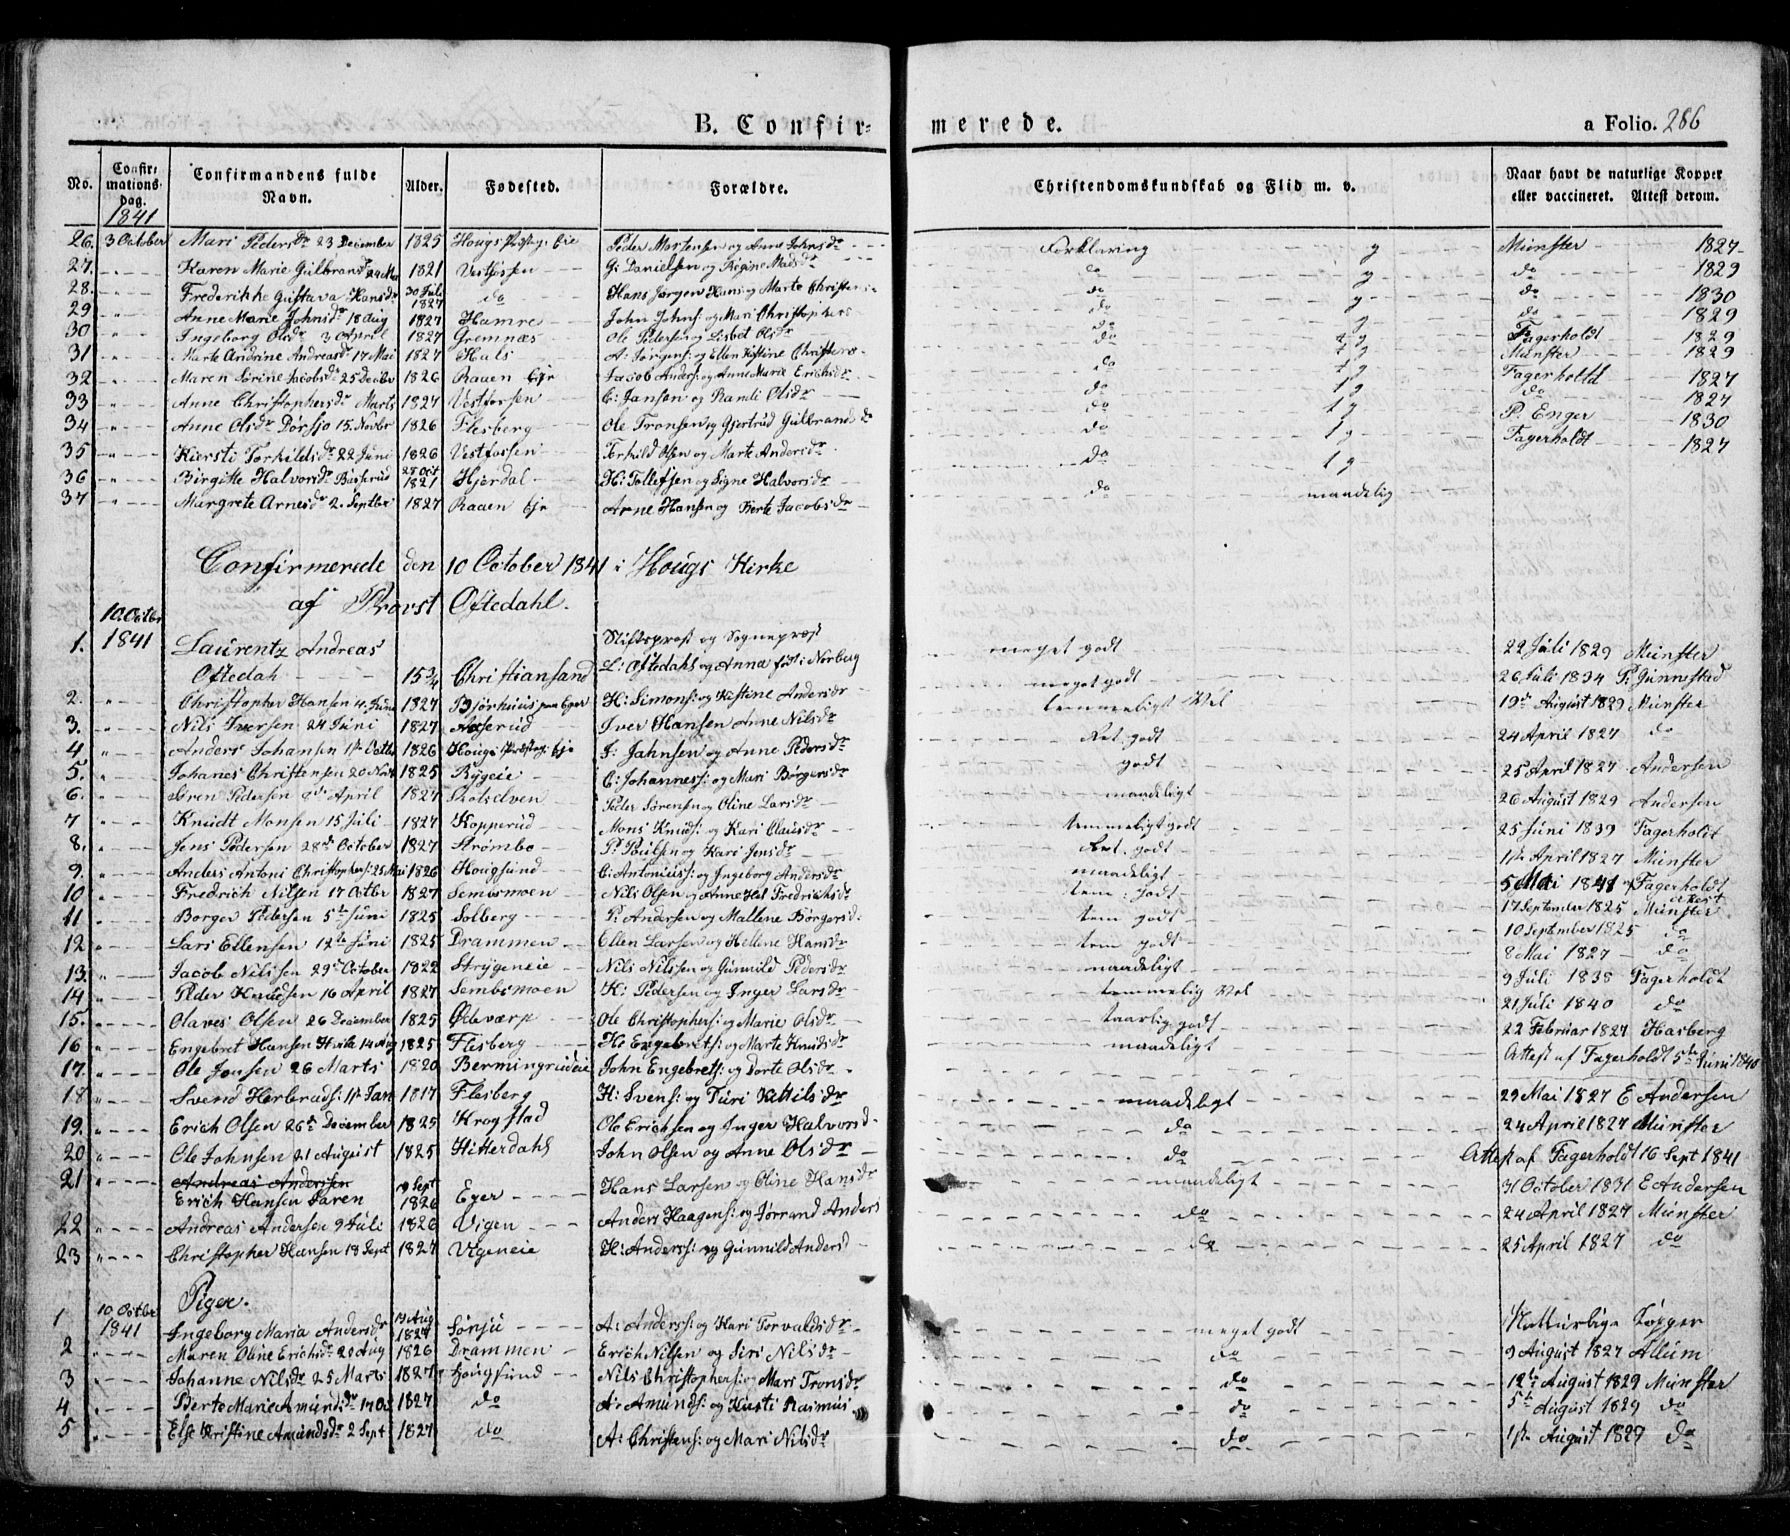 B. Confir-
merede.
a Folio. 286
No.
Confir-
mations-
dag.
Confirmandens fulde
Navn.
Alder.
Fødested.
Forældre.
Christendomskundskab og Flid m. v.
Naar havt de naturlige Kopper
eller vaccineret. Attest derom.
1841
26. 3 October Mari Pedersdr 23 December 1825 Hougs Præstog: Eie Peder Mortensen og Anne Johnsdr Forklaring g Münster 1827
27. " Karen Marie Gulbransdr 24 Mai 1821 Vestfossen G: Danielsen og Regine Madsdr do g do 1829
28. " Frederikke Gustava Hansdr 30 Juli 1827 do Hans Jørgen Hans: og Marte Christens: do g do 1830
29 " Anne Marie Johnsdr 18 Aug 1827 Hamre John Johns: og Mari Christophers do g do 1829
30 " Ingeborg Olsdr 3 April 1827 Gremnæs Ole Pedersen og Lisbet Olsdr do g Fagerholdt 1829
31 " Marte Andrine Andreasdr 17 Mai 1827 Hals A: Jørgens: og Ellen Kistine Christens: do t g Münster 1829
32 " Maren Sørine Jacobsdr 25 Decbr 1826 Raaen Eje Jacob Anders: og Anne Marie Erichsdr do t g Fagerholtd 1827
33 " Anne Christophersdr Marts 1827 Vestfossen C: Jansen og Randi Olsdr do t g do 1827
34 " Anne Olsdr Dørsjo 15 Novbr 1826 Flesberg Ole Tronsen og Gjertrud Gulbrandsdr do t g P. Enger 1830
35 " Kiersti Torkildsdr 22 Juni 1826 Vestfossen Torkild Olsen og Marte Andersdr do t g Fagerholdt 1827
36 " Birgitte Halvorsdr Baaserud 28 Oct 1821 Hjerdal H: Tollefsen og Signe Halvorsdr do t g
37 " Margrete Arnesdr 2 Septbr 1827 Raaen Eje Arne Hansen og Berte Jacobsdr do maadelig
Confirmerede den 10 October 1841 i Hougs Kirke
af Provst Oftedahl.
10. Octbr
1. 1841 Laurentz Andreas Stiftsprost og Sognepræst meget godt 22 Juli 1829 Münster
Oftedah 15 3/4 Christiansand L: Oftedahl og Anna født i Norberg
2. " Christopher Hansen 4 Juni 1827 Bjørnhuus paa Eger H: Simons: og Kistine Andersdr meget godt 26 Juli 1834 P: Gunnestad
3. " Nils Iversen 24 Juni 1827 Aaserud Iver Hansen Anne Nilsdr temmeligt Vel 19de August 1829 Münster
4 " Anders Johansen 1ste Octbr 1826 Hougs Præstog: Eje J: Jahnsen og Anne Pedersdr Ret godt 24 April 1827 do
5. " Johanes Christensen 20 Novbr 1825 Rygeie C: Johanness: og Mari Børgersdr godt 25 April 1827 Andersen
6. " Søren Pedersen 9de April 1827 Skotselven Peder Sørensen og Oline Larsdr maadeligt 26 August 1829 Andersen
7 " Knudt Monsen 15 Juli 1827 Kopperud Mons Knuds: og Kari Clausdr temmeligt godt 25 Juni 1839 Fagerholdt
8. " Jens Pedersen 28de October 1827 Strømbo P: Poulsen og Kari Jensdr Ret godt 1ste April 1827 Münster
9. " Anders Antoni Christophers: 25 Mai 1826 Hougsund C: Antonius: og Ingeborg Andersdr maadeligt 5 Mai 1841 Fagerholdt
10 " Fredrich Nilsen 17 Octbr 1827 Sembsmoen Nils Olsen og Anne Hel: Fredriksdr tem: godt 17 September 1825 Münster
11 " Borger Pedersen 5te Juni 1825 Solberg P: Andersen og Mallene Børgersd: tem godt 10 September 1825 do
12 " Lars Ellensen 12te Juni 1825 Drammen Ellen Larsen og Hellene Hansdr tem godt 8 Mai 1827 do
13. " Jacob Nilssen 29de October 1822 Strygeneie Nils Nilssen og Gunnild Pedersdr maadeligt 9 Juli 1838 Fagerholdt
14 " Peder Knudsen 16 April 1827 Sembsmoen K: Pedersen og Inger Larsdr temmelig Vel 21 Juli 1840 do
15. " Olaves Olsen 26 December 1825 Ødeværp Ole Christophers: og Marie Olsdr taarlig godt 22 Februar 1827 Hasberg
16 " Engebret Hansen Hvila 14 Aug 1825 Flesberg Ha Engebrets: og Marte Knudsdr maadeligt Attest af Fagerholdt 5te Juni 1840
17. " Ole Jonsen 26 Marts 1820 Bermingrudeie John Engebrets: og Dorte Olsdr
18 " Svend Herbrands: 1ste Jan 1817 Flesberg H: Svens: og Turi Kittilsdr maadeligt 29 Mai 1827 E Andersen
19. " Erich Olsen 26de December 1825 Krogstad Ole Erichsen og Inger Halvorsd do 24 April 1827 Münster
20 " Ole Johnsen 21 August 1825 Hitterdahl John Olsen og Anne Olsdr do Attest af Fagerholdt 16 Sept 1841
21 " Andreas Andersen
Erich Hansen Saren 19 Sept 1826 Eger Hans Larsen og Oline Hansdr maadeligt 31 October 1831 E Andersen
22 " Andreas Andersen 9 Juli 1826 Vigen Anders Haagens: og Jørrand Anders do 24 April 1827 Münster
23 " Christopher Hansen 18 Sept 1827 Vigeneie H: Anderss: og Gunnild Andersd do 25 April 1827 do
Piger.
1 10 Octbr 1841 Ingeborg Maria Andersdr 19 Aug 1827 Sønju A: Anderss: og Kari Torvaldsdr meget godt Naturlige Kopper
2 " Maren Oline Erichsdr 20 Aug 1826 Drammen Erich Nilsen og Siri Nilsdr do 9 August 1827 Allum
3 " Johanne Nilsdr 25 Marts 1827 Hougsund Nils Christophers: og Mari Tronsdr do 12te August 1829 Münster
4 " Berte Marie Amundsdr 17 Oct 1827 do A: Amunds: og Kirsti Rasmus do 5te August 1829 do
5 " Else Kristine Amundsdr 2 Sept 1827 do A: Christens: og Mari Nilsdr do 1ste August 1827 do